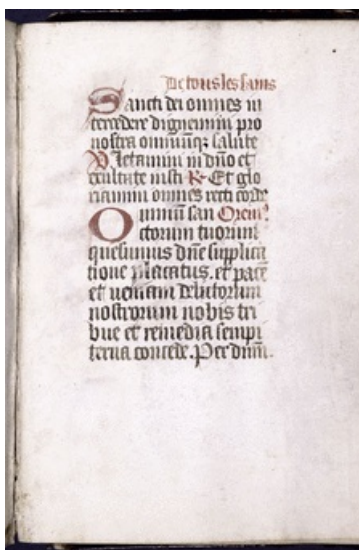 De tous les sains
Sancti dei omnes in
tercedere dignemini pro
nostra omniuq; salute
V. Letamini in dno et
exultate iusti R. Et glo
riamini omnes recti corde
Omnium san Orem9
ctorum tuorum
quesumus dne supplica
tione placatus. et pace
et veniam debitorum
nostrorum nobis tri
bue et remedia sempi
terna concede. Per dnm.